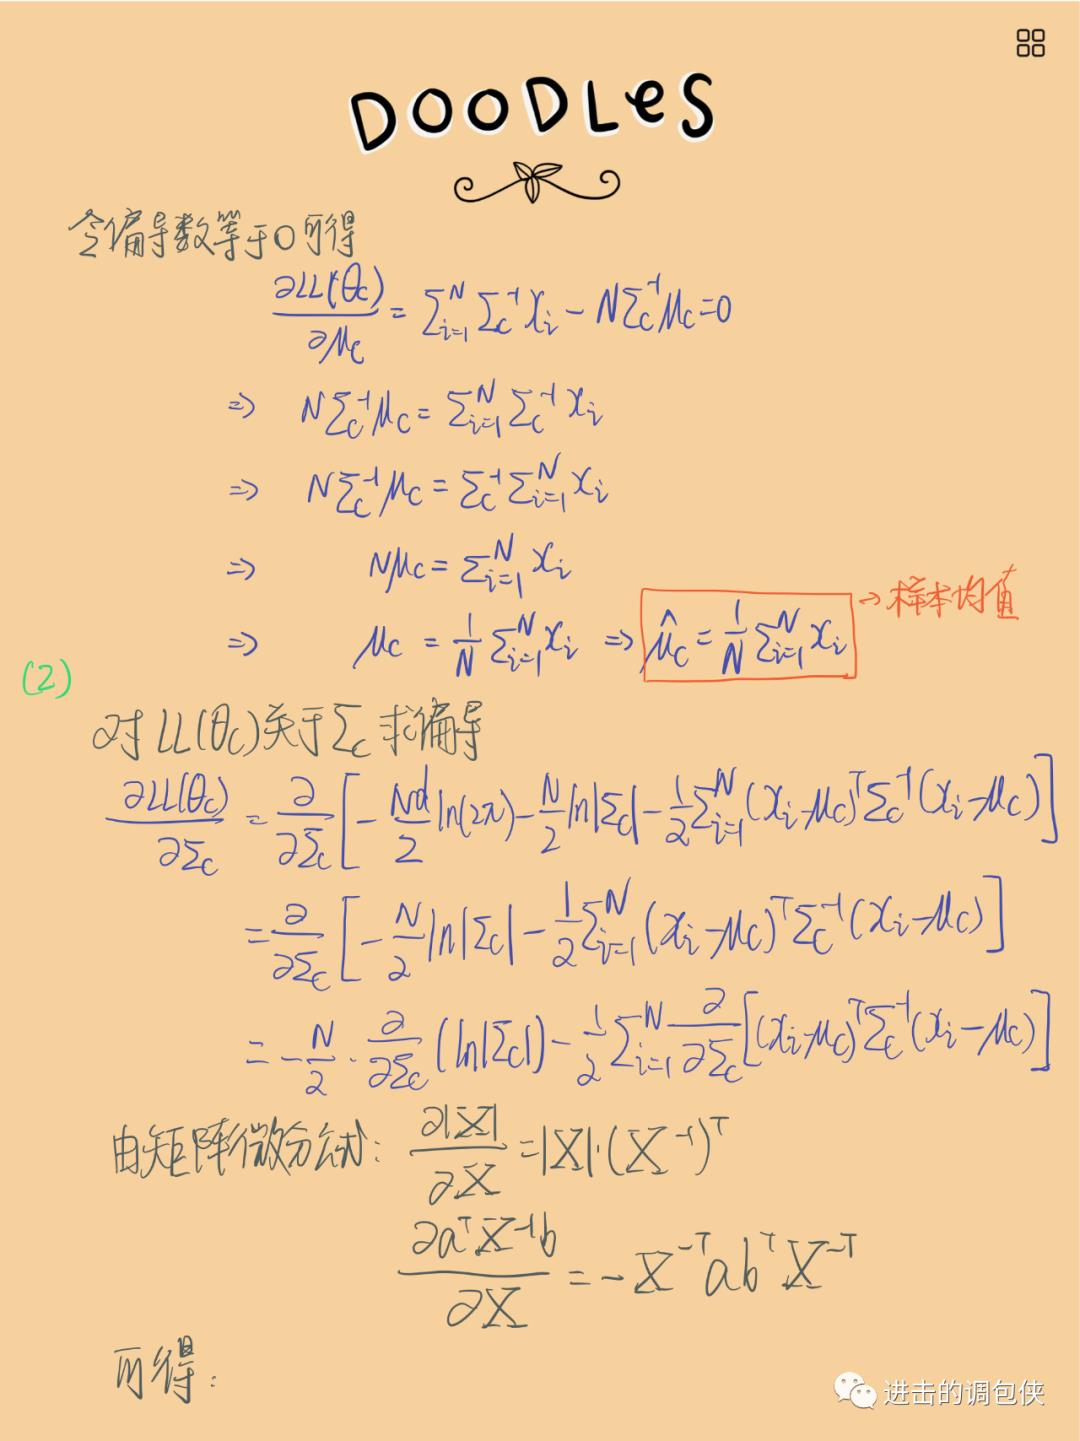 DOODLES
令偏导数等于0可得
∂LL(θc)/∂μc = ∑_{i=1}^{N} Σc^{-1} x_i − NΣc^{-1}μc = 0
⇒ NΣc^{-1}μc = ∑_{i=1}^{N} Σc^{-1} x_i
⇒ NΣc^{-1}μc = Σc^{-1} ∑_{i=1}^{N} x_i
⇒ Nμc = ∑_{i=1}^{N} x_i
⇒ μc = 1/N ∑_{i=1}^{N} x_i ⇒ μ̂c = 1/N ∑_{i=1}^{N} x_i → 样本均值
(2)
对LL(θc)关于Σc求偏导
∂LL(θc)/∂Σc = ∂/∂Σc [ − Nd/2 ln(2π) − N/2 ln|Σc| − 1/2 ∑_{i=1}^{N} (x_i−μc)^T Σc^{-1} (x_i−μc) ]
= ∂/∂Σc [ − N/2 ln|Σc| − 1/2 ∑_{i=1}^{N} (x_i−μc)^T Σc^{-1} (x_i−μc) ]
= − N/2 · ∂/∂Σc (ln|Σc|) − 1/2 ∑_{i=1}^{N} ∂/∂Σc [ (x_i−μc)^T Σc^{-1} (x_i−μc) ]
由矩阵微分公式: ∂|X|/∂X = |X|·(X^{-1})^T
∂a^T X^{-1} b/∂X = − X^{-T} a b^T X^{-T}
可得:
进击的调包侠